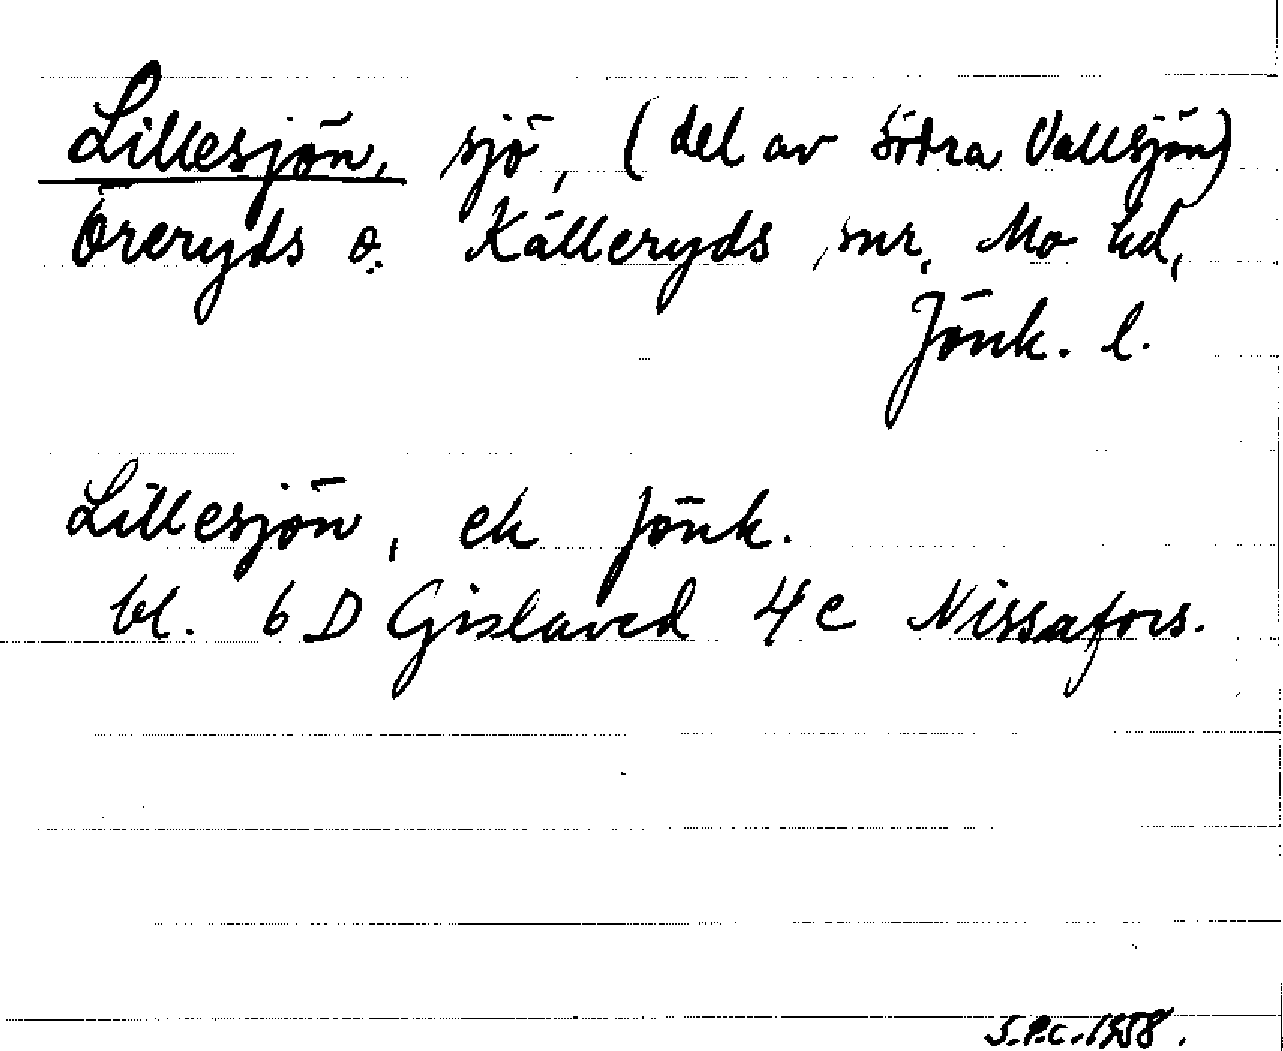 Lillesjön, sjö, (del av Södra Vallsjön)
Öreryds o. Källeryds snr, Mo hd,
Jönk. l.
Lillesjön, ek Jönk.
bl. 6 D Gislaved 4 c Nissafors.
S.P.C. 1958.